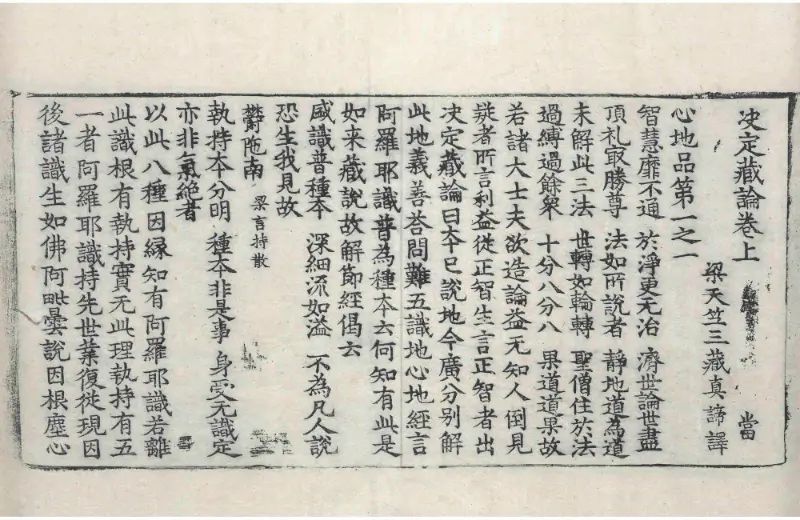 决定藏論卷上　當
梁天竺三藏真諦譯
心地品第一之一
智慧靡不通　於淨更无治　濟世論世盡
頂礼㝡勝尊　法如所說者　靜地道為道
未解此三法　世轉如輪轉　聖僧住於法
過縛過餘矣　十分八分八　果道道果故
若諸大士夫欲造論益无知人倒見
疑者所言利益從正智生言正智者出
決定藏論曰本已說地今廣分別解
此地義善答問難五識地心地經言
阿羅耶識普為種本云何知有此是
如来藏說故解節經偈云
感識普種本　深細流如溢　不為凡人說
恐生我見故
欝陁南　梁言持散
執持本分明　種本非是事　身受无識定
亦非氣絕者
以此八種因緣知有阿羅耶識若離
此識根有執持實无此理執持有五
一者阿羅耶識持先世業復從現因
後諸識生如佛阿毗曇說因根塵心